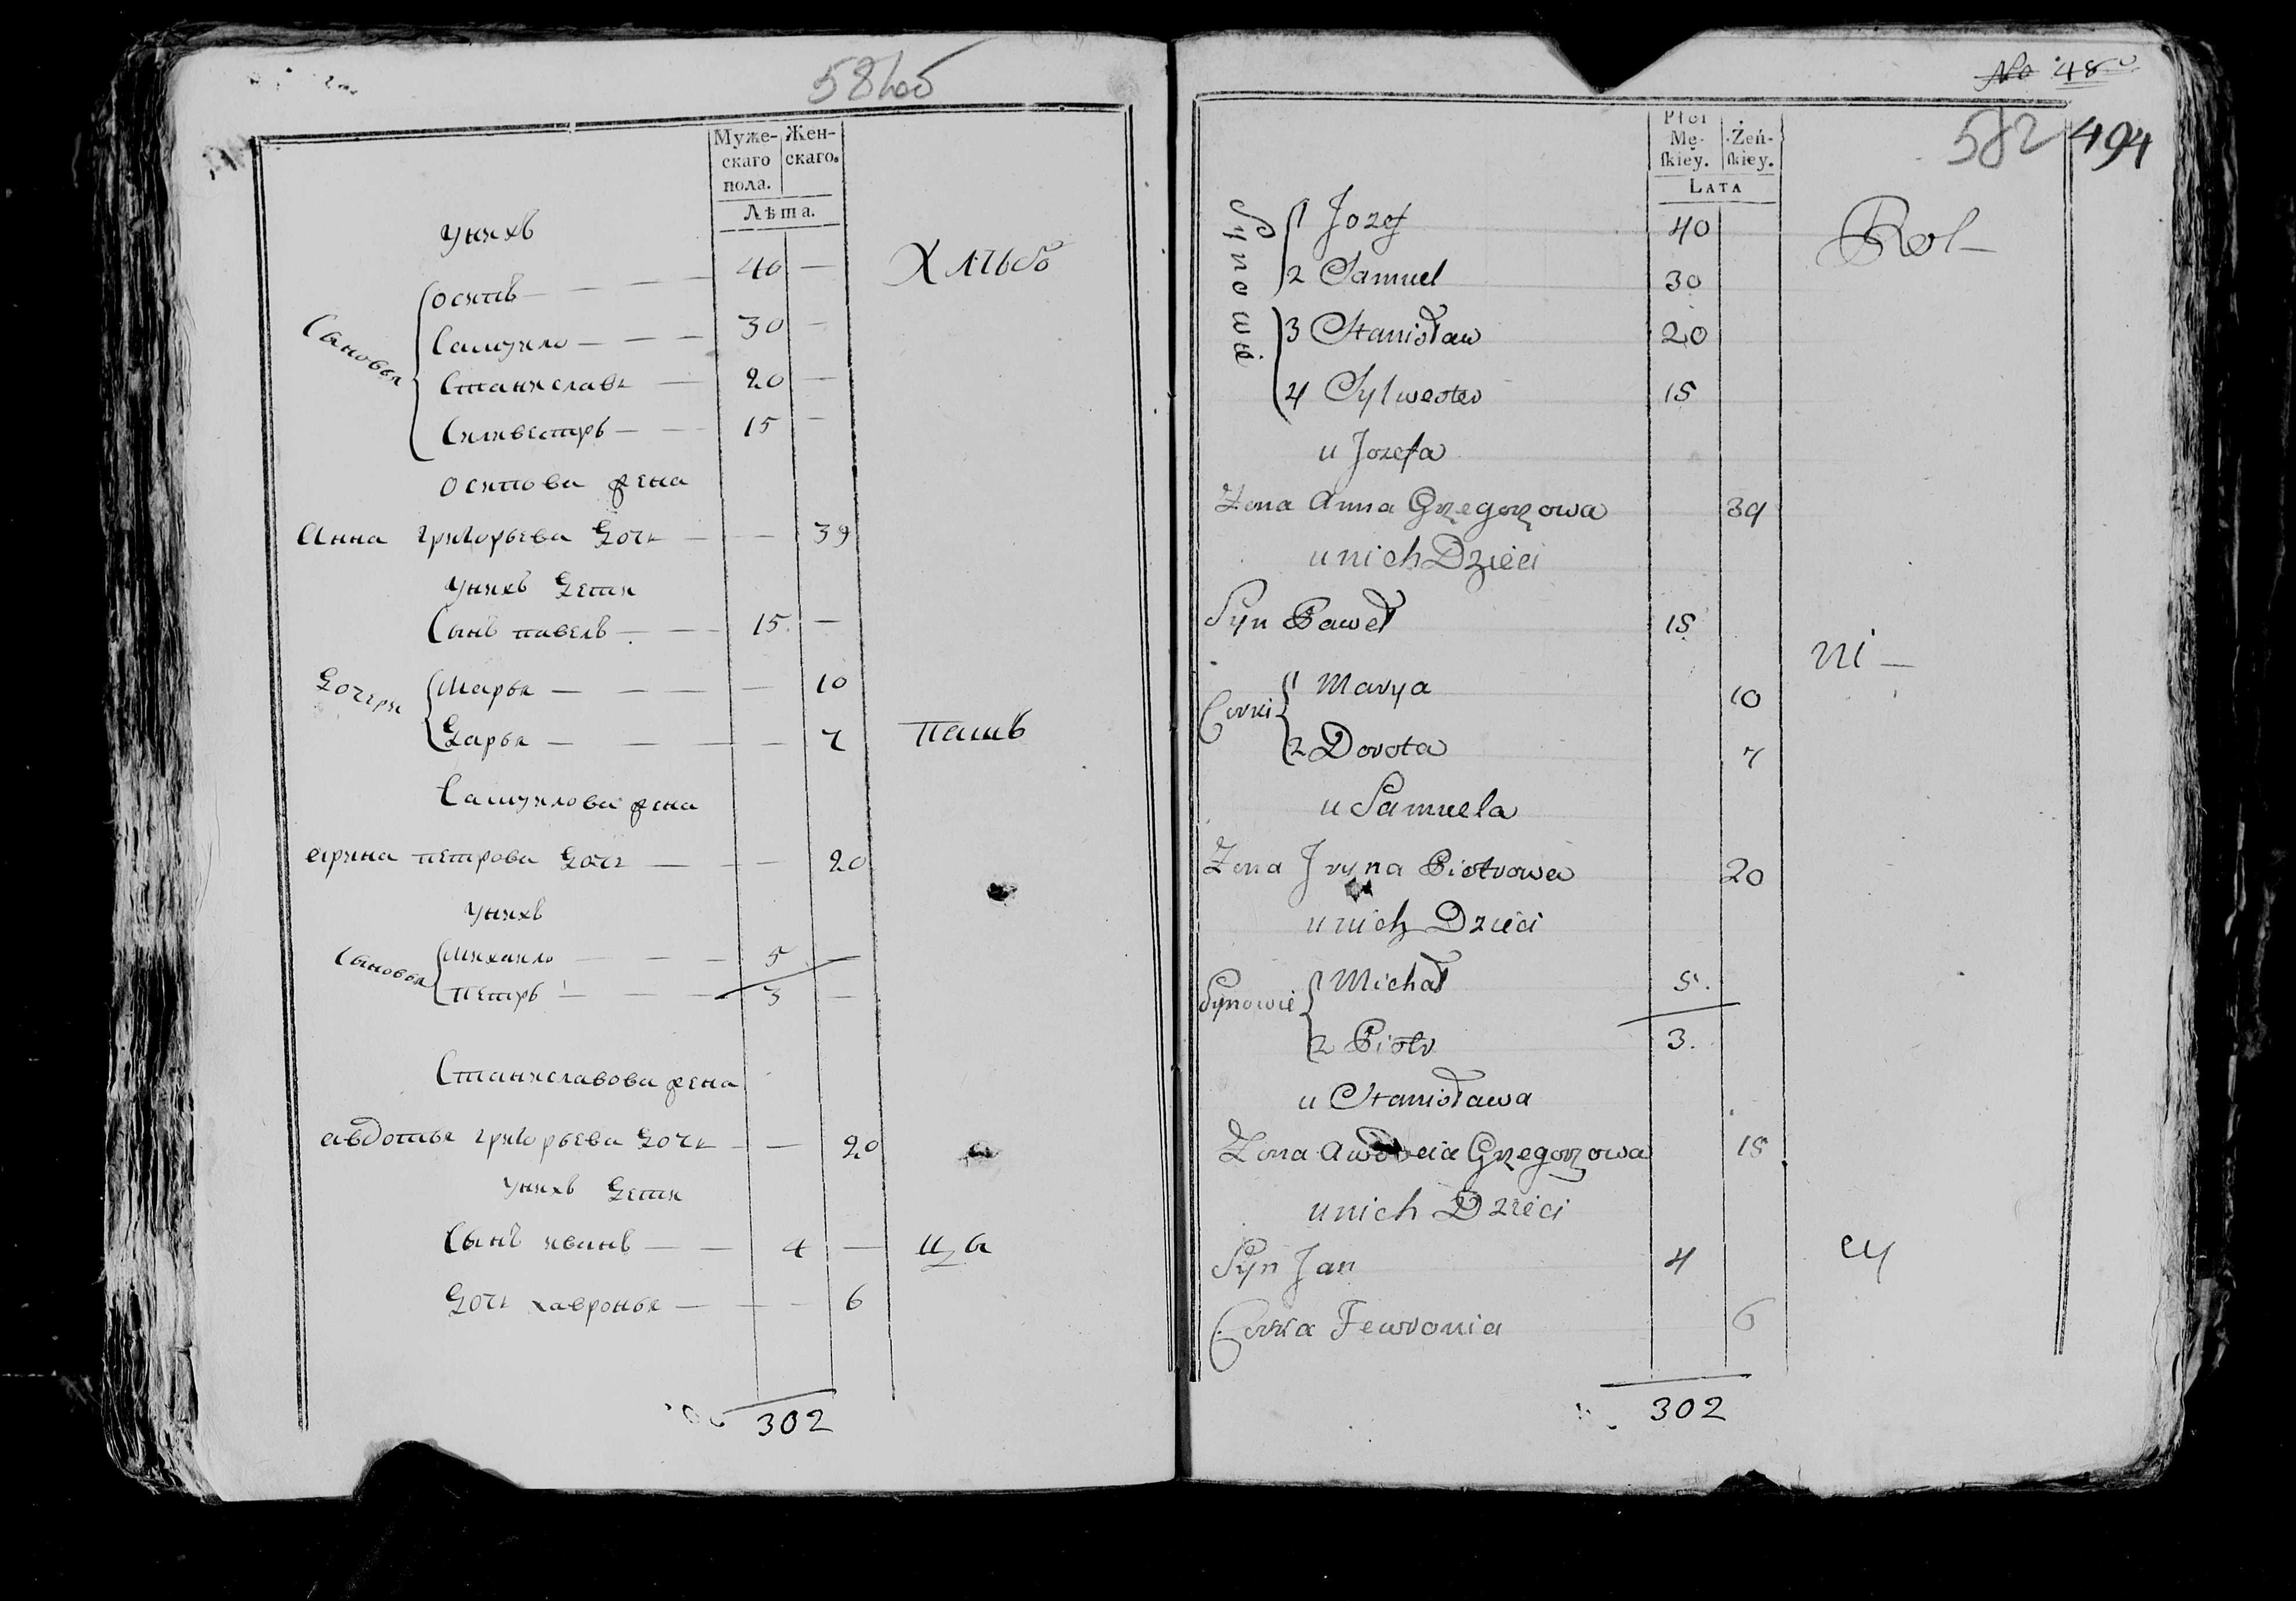 58 об
Муже-
скаго
пола.
Жен-
скаго.
Лѣта.
унихъ
Сыновья
осипъ — — — 40 —
Хлѣбо
Самуило — — — 30 —
Станиславъ — 20 —
Силивестръ — — 15 —
осипова жена
Анна григорьева дочь — — 39
унихъ дети
Сынъ павелъ — — 15. —
дочери
Марья — — — — 10
дарья — — — — 7
пашъ
Самуилова жена
арина петрова дочь — — 20
унихъ
Сыновья
Михаило — — — 5 —
петръ — — — 3 —
Станиславова жена
авдотья григорьева дочь — — 20
унихъ дети
Сынъ иванъ — — 4 —
цы
дочь хавронья — — — 6
302
No 48
582
494
Płci
Mę-
ſkiey.
Żeń-
ſkiey.
LATA
Synowie
1 Jozef 40
Rol—
2 Samuel 30
3 Stanisław 20
4 Sylwester 15
u Jozefa
Zona Anna Grzegorzowa 39
u nich Dzieci
Syn Paweł 15
ni—
Corki
1 Marya 10
2 Dorota 7
u Samuela
Zona Jryna Piotrowa 20
u nich Dzieci
Synowie
1 Michał 5.
2 Piotr 3.
u Stanisława
Zona Awdocia Grzegorzowa 18
u nich Dzieci
Syn Jan 4
cy
Corka Fewronia 6
302